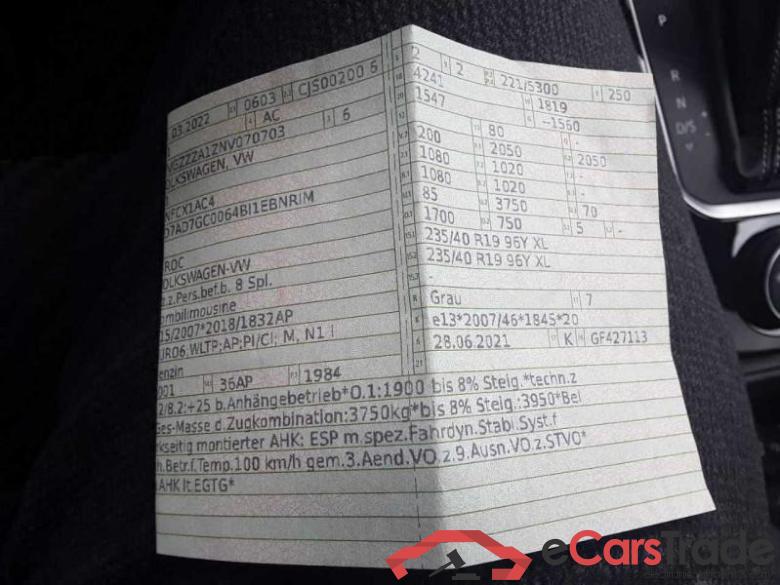 2 2 221/5300 250
03.2022 0603 CJS00200 6 4241
AC 1547 1819
6 -1560
ZZZA1ZNV070703 200 80 -
OLKSWAGEN, VW 1080 2050 2050
1080 1020 -
NFCX1AC4 85 1020 -
D7AD7GC0064BI1EBNRIM 1700 3750 70
750 5 -
235/40 R19 96Y XL
RDC 235/40 R19 96Y XL
OLKSWAGEN-VW -
z.z.Pers.bef.b. 8 Spl. Grau 7
mbilimousine e13*2007/46*1845*20
15/2007*2018/1832AP 28.06.2021 K GF427113
URO6;WLTP;AP;PI/CI; M, N1 I
enzin
001 36AP 1984
2/8.2:+25 b.Anhängebetrieb*O.1:1900 bis 8% Steig.*techn.z
Ges-Masse d.Zugkombination:3750kg*bis 8% Steig.:3950*Bei
rkseitig montierter AHK: ESP m.spez.Fahrdyn.Stabi.Syst.f
h.Betr.f.Temp.100 km/h gem.3.Aend.VO.z.9.Ausn.VO.z.STVO*
AHK lt.EGTG*
P
R
N
D/S
eCarsTrade